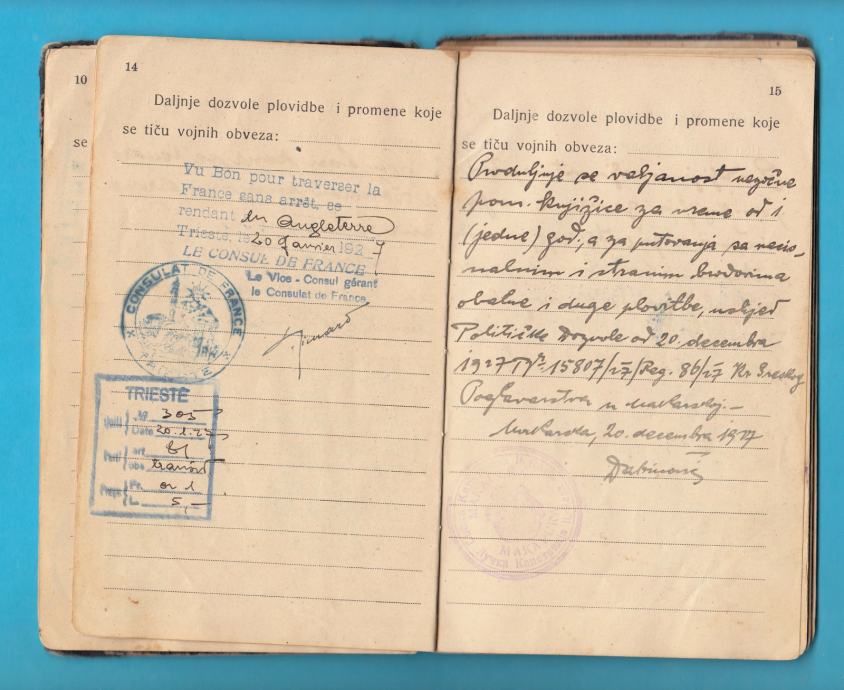 10
se
14
Daljnje dozvole plovidbe i promene koje
se tiču vojnih obveza:
Vu Bon pour traverser la
France sans arrêt, se
rendant en Angleterre
Trieste, le 20 Janvier 1927
LE CONSUL DE FRANCE
Le Vice - Consul gérant
le Consulat de France
CONSULAT DE FRANCE
TRIESTE
TRIESTE
No 305
Date 20.1.27
art
transit
Fr. or 1
L. 5,-
15
Daljnje dozvole plovidbe i promene koje
se tiču vojnih obveza:
Produljuje se valjanost
pom. knjižice za vreme od 1
(jedne) god., a za putovanja sa nacio-
nalnim i stranim brodovima
obalne i duge plovitbe, usljed
Političke Dozvole od 20. decembra
1927 No 15807/27/Reg. 86/27 Kr. Sreskog
Poglavarstva u Makarskoj.-
Makarska, 20. decembra 1927